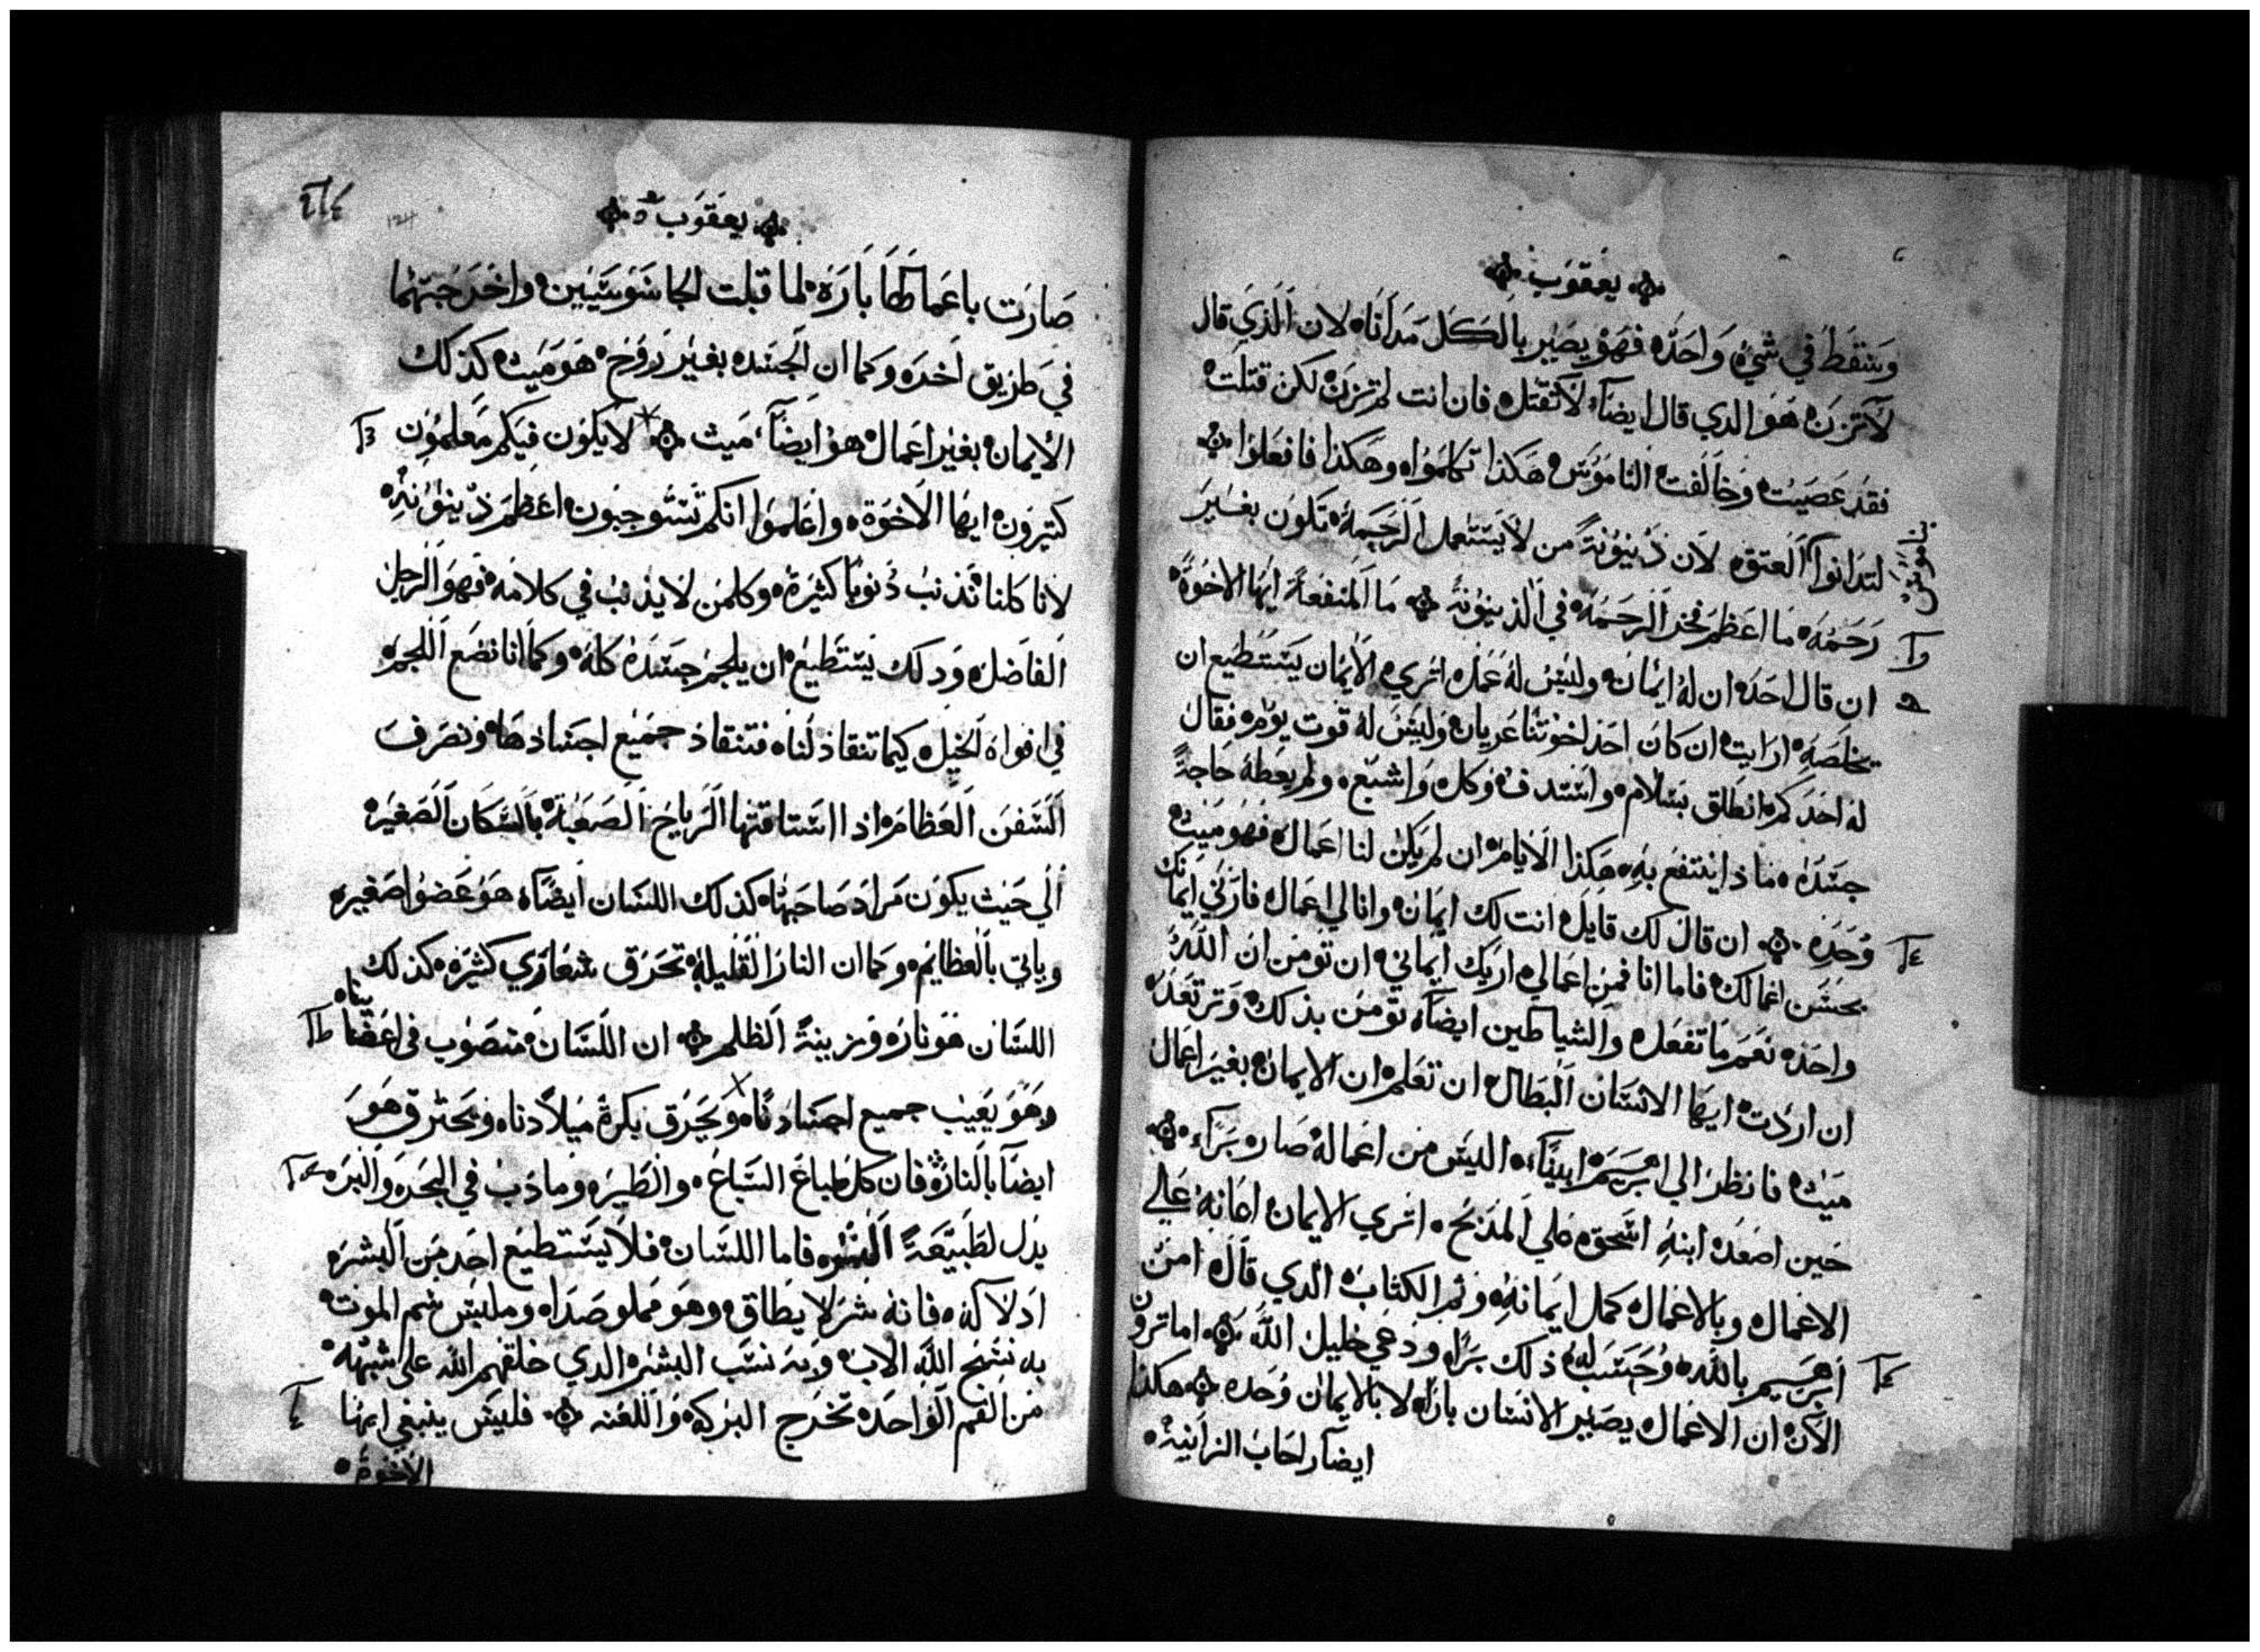 يعقوب
وسقط في شيء واحده فهو يصير بالكل مدانا لان الذي قال
لا تزن هو الدي قال ايضا لا تقتل فان انت لم تزن لكن قتلت
فقد عصيت وخالفت الناموس هكذا تكلموا وهكذا فافعلوا
لتدانوا العتق لان دينونة من لا يستعمل الرحمة تكون بغير
بناموس
رحمه ما اعظم فخر الرحمة في الدينونة ما المنفعة ايها الاخوة
ان قال احد ان له ايمان وليس له عمل اتري الايمان يستطيع ان
يخلصه ارايت ان كان احد اخوتنا عريان وليس له قوت يوم فقال
له احدكم انطلق بسلام واستدف وكل واشبع ولم يعطه حاجة
جسده ماذا ينتفع به هكذا الايامن ان لم يكن لنا اعمال فهو ميت
وحده ان قال لك قايل انت لك ايمان وانا لي اعمال فارني ايمانك
بحسن اعمالك فاما انا فمن اعمالي اريك ايماني ان تومن ان الله
واحد نعم ما تفعل والشياطين ايضا تومن بذلك وترتعد
ان اردت ايها الانسان البطال ان تعلم ان الايمان بغير اعمال
ميت فانظر الي ابرهيم ابينا اليس من اعماله صار برا
حين اصعد ابنه اسحق علي المذبح اتري الايمان اعانه علي
الاعمال وبالاعمال كمل ايمانه وتم الكتاب الدي قال امن
ابرهيم بالله وحسب له ذلك برا ودعي خليل الله اما ترون
الان ان الاعمال يصير الانسان بارا لا بالايمان وحده هكذا
ايضا راحاب الزانية
يعقوب
صارت باعمالها بارة لما قبلت الجاسوسيين واخرجتهما
في طريق اخره وكما ان الجسد بغير روح هو ميت كذلك
الايمان بغير اعمال هو ايضا ميت لا يكون فيكم معلمون
كتيرون ايها الاخوة واعلموا انكم تستوجبون اعظم دينونة
لانا كلنا نذنب ذنوبا كثيرة وكلمن لا يذنب في كلامه فهو الرجل
الفاضل ودلك يستطيع ان يلجم جسده كله وكما انا نضع اللجم
في افواه الخيل كيما تنقاد لنا فتنقاد جميع اجسادها ونصرف
السفن العظام اذا استاقتها الرياح الصعبة بالسكان الصغير
الي حيث يكون مراد صاحبها كذلك اللسان ايضا هو عضوا صغير
وياتي بالعظائم وكما ان النار القليلة تحرق شعاري كثيرة كذلك
اللسان هو نار وزينة الظلم ان اللسان منصوب في اعضاينا
وهو يعيب جميع اجسادنا ويحرق بكرة ميلادنا ويحترق هو
ايضا بالنار فان كل طباع السباع والطير وما دب في البحر والبر
يدل لطبيعة البشر فاما اللسان فلا يستطيع احد من البشر
ادلاله فانه شر لا يطاق وهو مملو صدا وملبس سم الموت
به نسبح الله الاب وبه نسب البشر الدي خلقهم الله علي شبهه
من الفم الواحد تخرج البركة واللعنه فليس ينبغي ايها
الاخوة